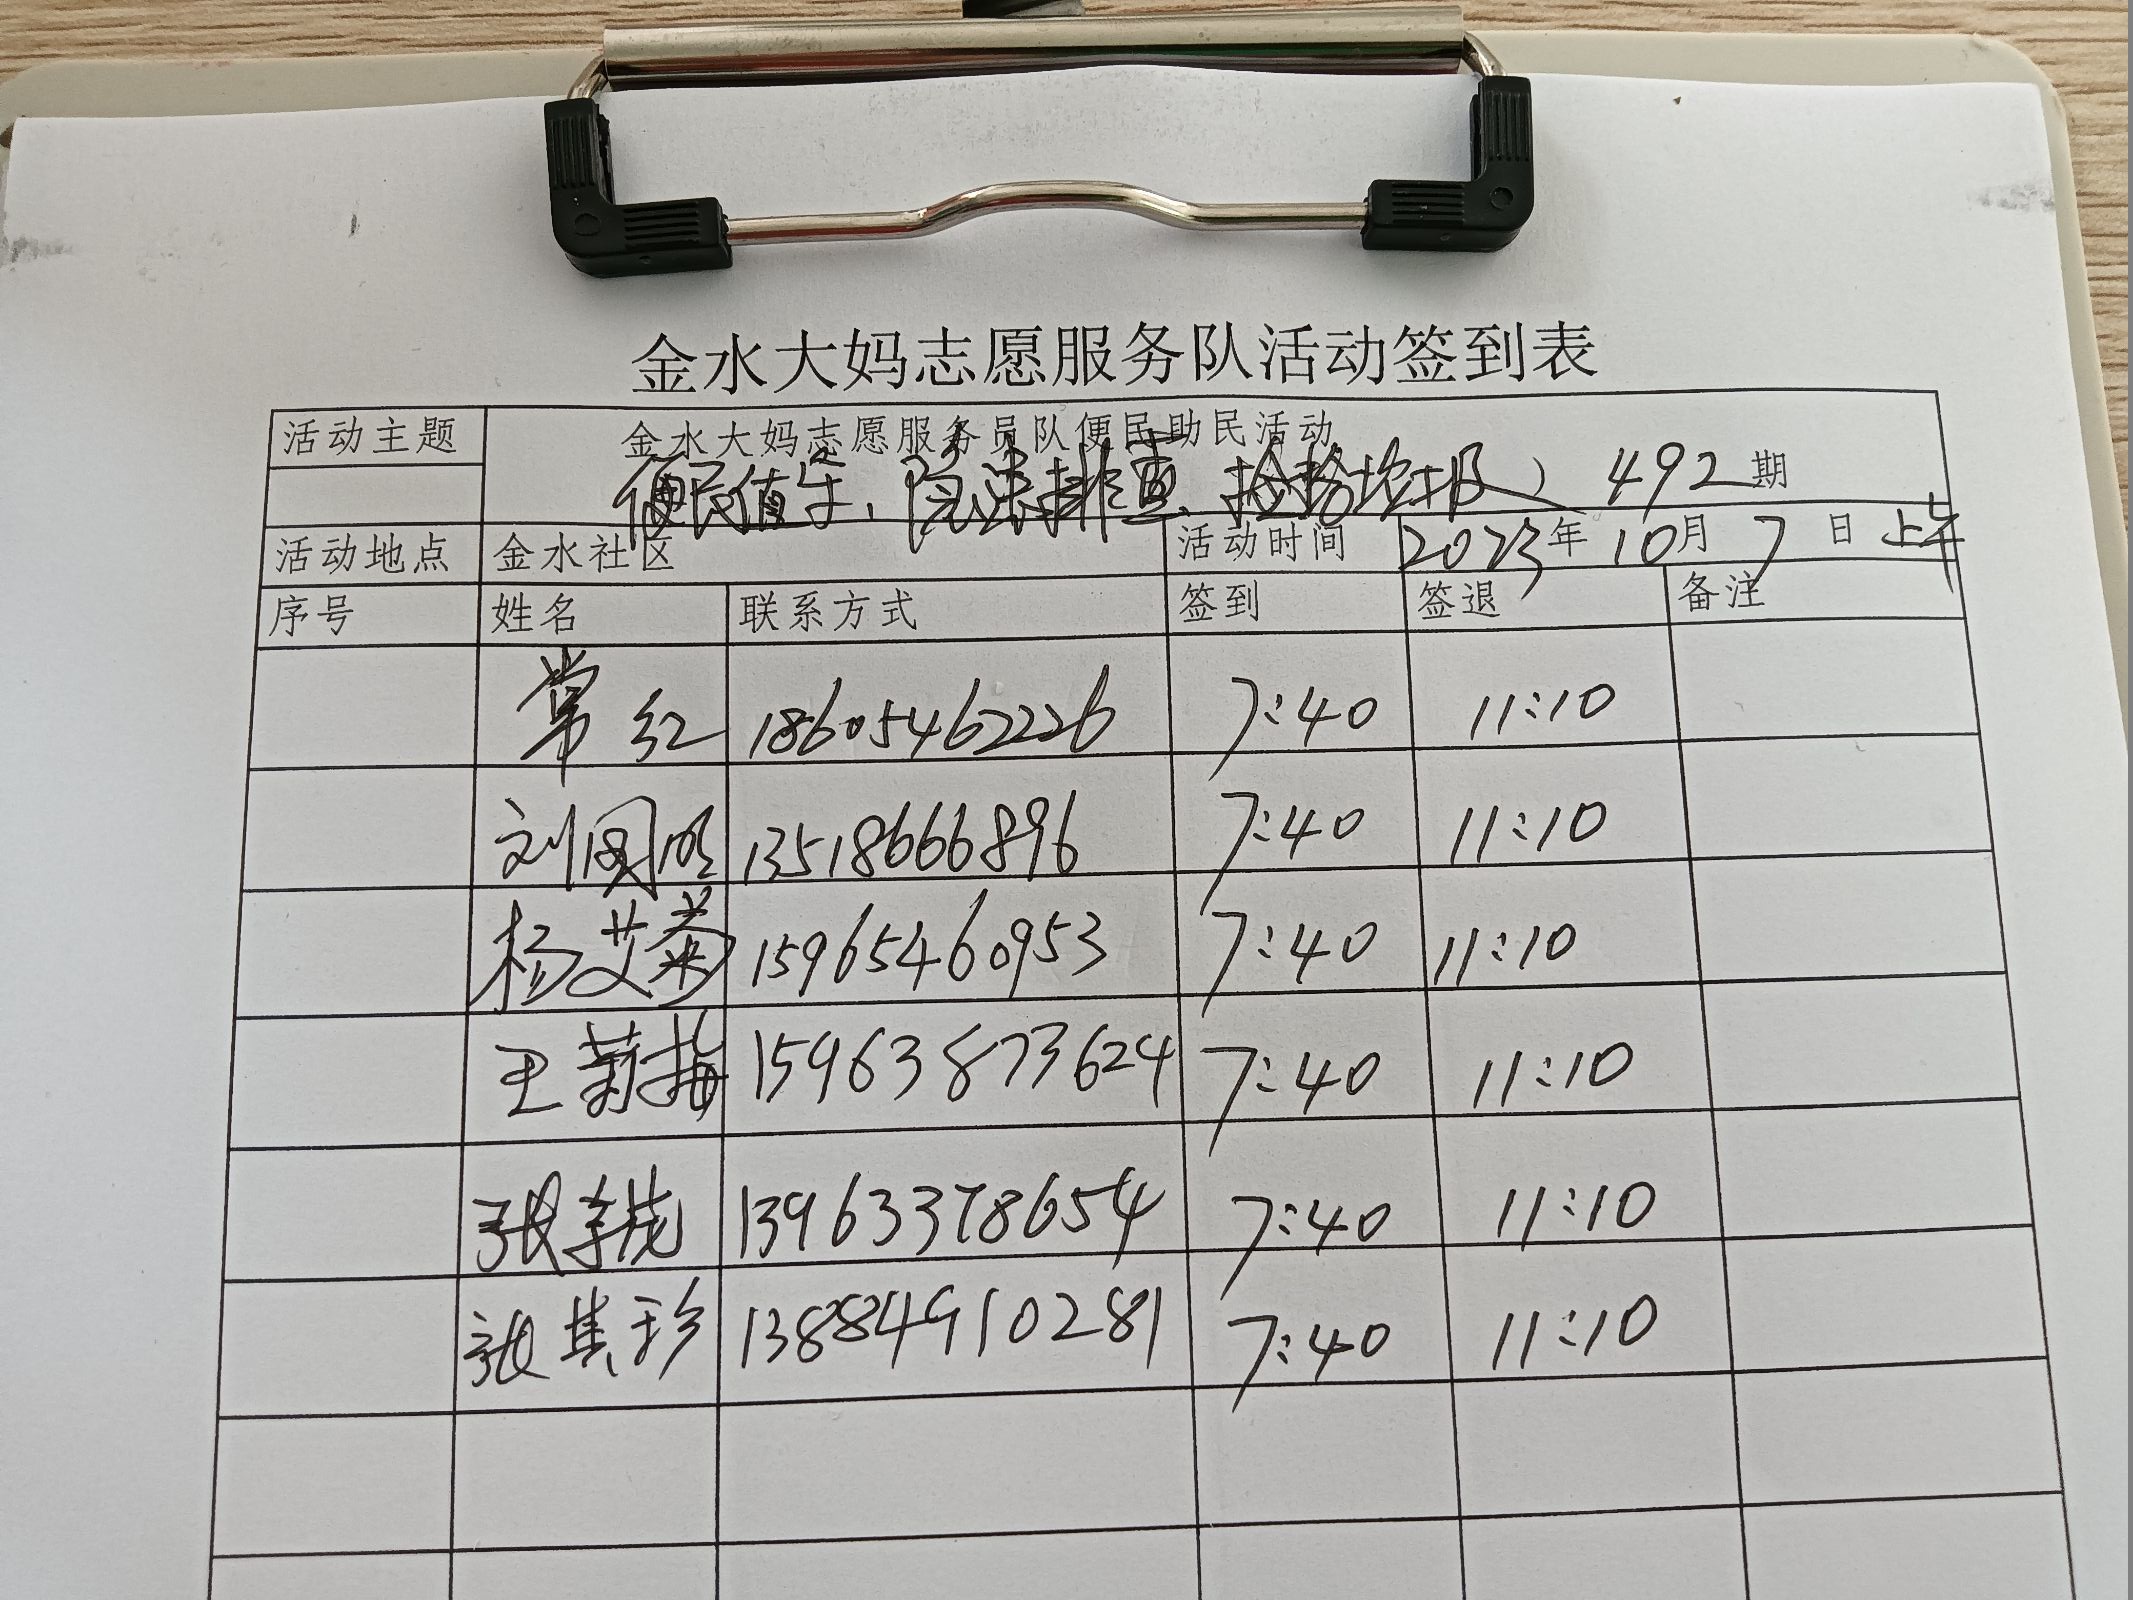 金水大妈志愿服务队活动签到表
活动主题 金水大妈志愿服务员队便民助民活动
便民值守、隐患排查、捡拾垃圾） 492期
活动地点 金水社区 活动时间 2023年10月7日上午
序号 姓名 联系方式 签到 签退 备注
常红 18605462226 7:40 11:10
刘国明 13518666896 7:40 11:10
杨艾菊 15965460953 7:40 11:10
王菊梅 15963873624 7:40 11:10
张 13963378654 7:40 11:10
张其珍 13884910281 7:40 11:10